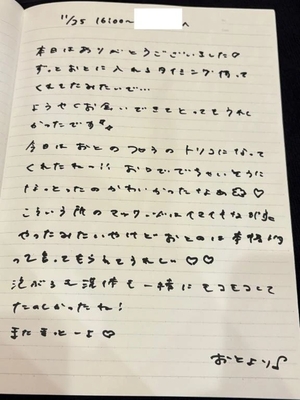 11/25 16:00〜 へ
本日はありがとうございました♡
ずっとおとに入れるタイミング待って
くれてたみたいで…
ようやくお会いできてとってもうれし
かったです
今日はおとのフロうのトリコになって
くれたねー!! お口ででちゃいそうに
なっとったのかわいかったなぁ ♡
こういう所のマットは イマイチな
やったみたいやけど おとのは 本格的
って言ってもらえてうれしい♡♡
泡がらも 混ぜて 一緒に モコモコして
たのしかったね!
またまっとーよ♡
おとより